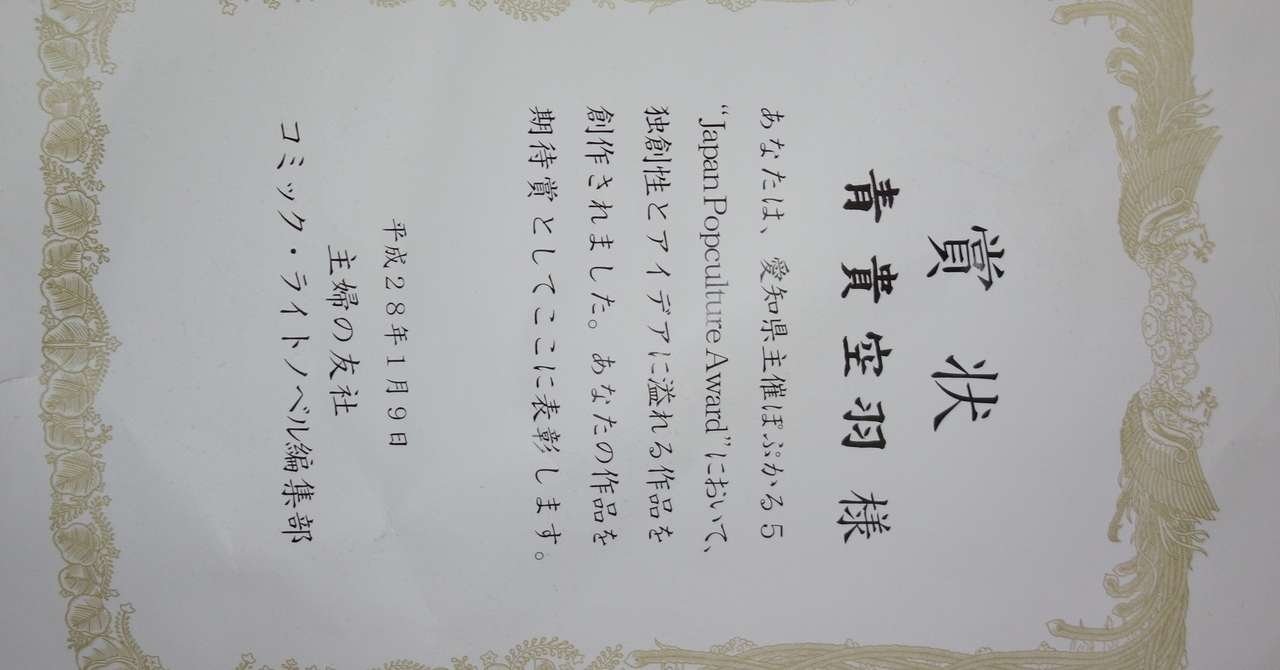 賞状
青貴空羽 様
あなたは、愛知県主催ぽぷかる５
“Japan Popculture Award”において、
独創性とアイデアに溢れる作品を
創作されました。あなたの作品を
期待賞としてここに表彰します。
平成２８年１月９日
主婦の友社
コミック・ライトノベル編集部